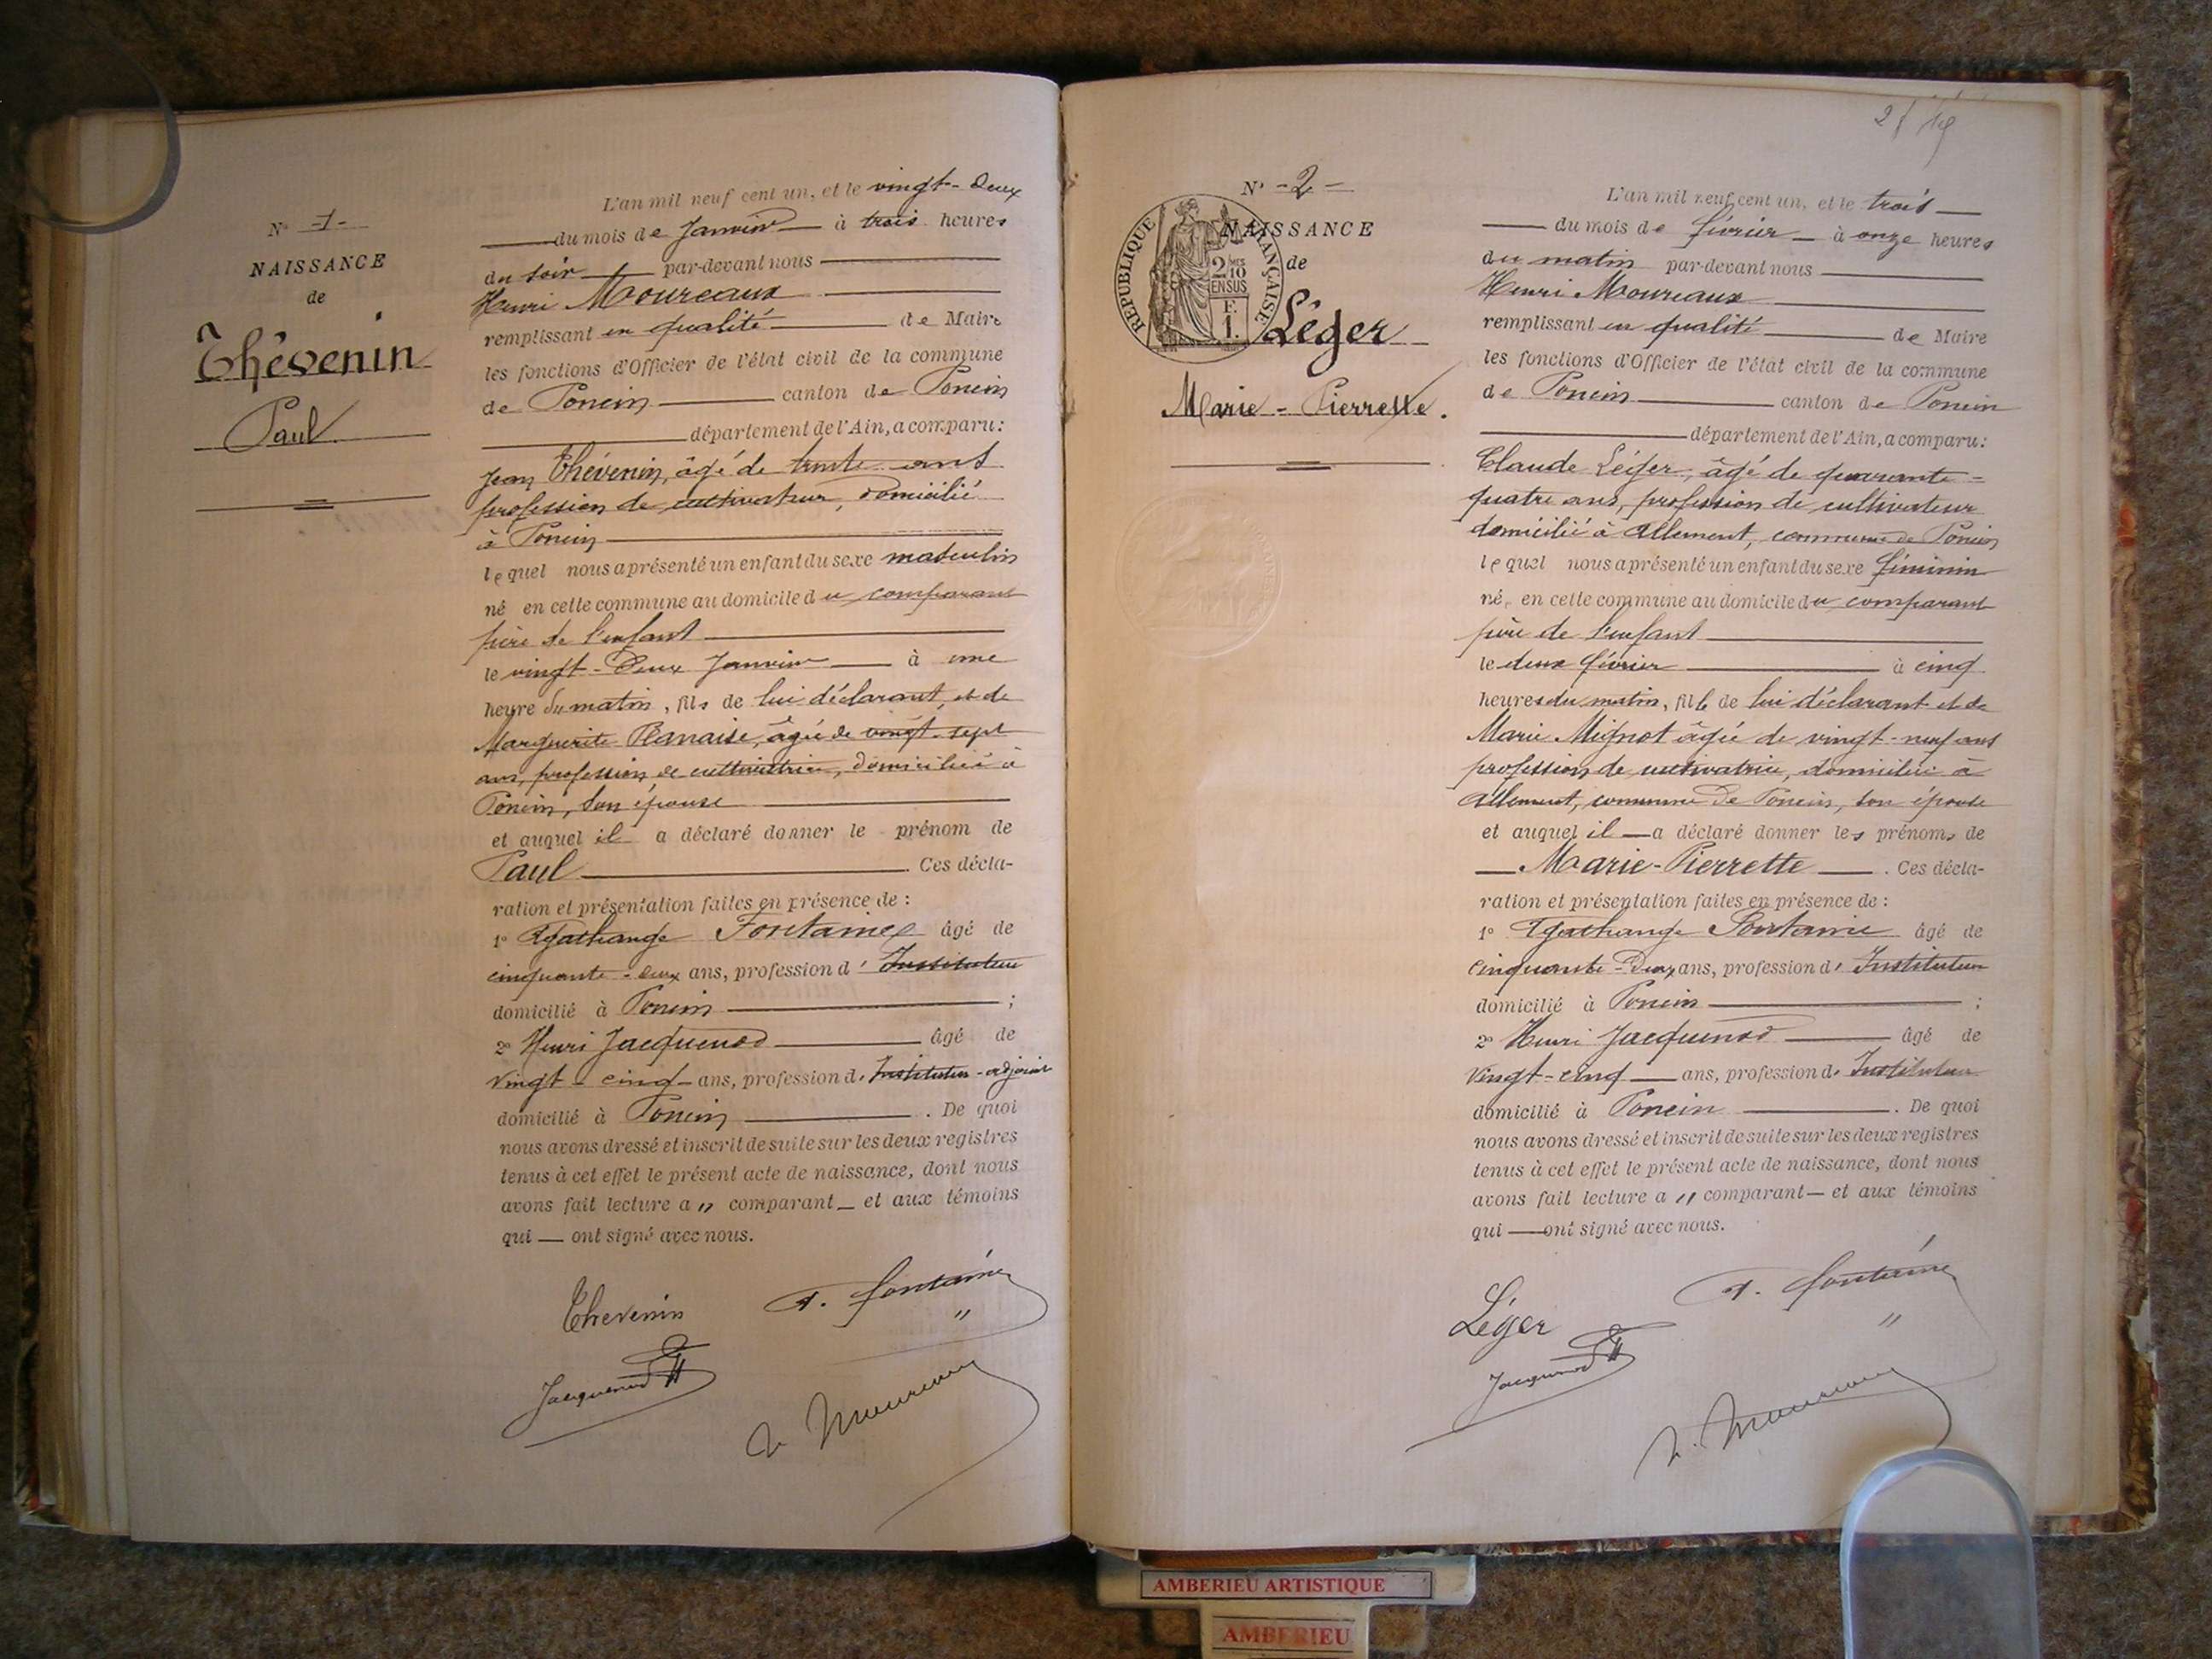 N° -1-
NAISSANCE
de
Thévenin
Paul
L'an mil neuf cent un, et le vingt-deux
du mois de Janvier à trois heures
du soir par-devant nous
Henri Moureaux
remplissant en qualité de Maire
les fonctions d'Officier de l'état civil de la commune
de Poncin canton de Poncin
département de l'Ain, a comparu:
Jean Thévenin, âgé de trente ans
profession de cultivateur, domicilié
à Poncin
lequel nous a présenté un enfant du sexe masculin
né en cette commune au domicile du comparant
père de l'enfant
le vingt-deux Janvier à une
heure du matin, fils de lui déclarant, et de
Marguerite âgée de vingt-sept
ans, profession de cultivatrice, domiciliée à
Poncin, son épouse
et auquel il a déclaré donner le prénom de
Paul. Ces décla-
ration et présentation faites en présence de :
1° Agathange Fontaine âgé de
cinquante-deux ans, profession d'Instituteur
domicilié à Poncin ;
2° Henri Jacquenod âgé de
vingt-cinq ans, profession d'Instituteur-adjoint
domicilié à Poncin. De quoi
nous avons dressé et inscrit de suite sur les deux registres
tenus à cet effet le présent acte de naissance, dont nous
avons fait lecture a " comparant — et aux témoins
qui — ont signé avec nous.
Thevenin A. fontaine
"
Jacquenod
H. Moureaux
N° -2-
NAISSANCE
de
RÉPUBLIQUE FRANÇAISE
2/10
EN SUS
F.
1.
Léger
Marie-Pierrette.
L'an mil neuf cent un, et le trois
du mois de février à onze heures
du matin par-devant nous
Henri Moureaux
remplissant en qualité de Maire
les fonctions d'Officier de l'état civil de la commune
de Poncin canton de Poncin
département de l'Ain, a comparu:
Claude Léger, âgé de quarante-
quatre ans, profession de cultivateur
domicilié à Allement, commune de Poncin
lequel nous a présenté un enfant du sexe féminin
né, en cette commune au domicile du comparant
père de l'enfant
le deux février à cinq
heures du matin, fille de lui déclarant et de
Marie Mignot âgée de vingt-neuf ans
profession de cultivatrice, domiciliée à
Allement, commune de Poncin, son épouse
et auquel il — a déclaré donner les prénoms de
Marie-Pierrette. Ces décla-
ration et présentation faites en présence de :
1° Agathange Fontaine âgé de
cinquante-deux ans, profession d'Instituteur
domicilié à Poncin ;
2° Henri Jacquenod âgé de
vingt-cinq ans, profession d'Instituteur
domicilié à Poncin. De quoi
nous avons dressé et inscrit de suite sur les deux registres
tenus à cet effet le présent acte de naissance, dont nous
avons fait lecture a " comparant — et aux témoins
qui — ont signé avec nous.
Léger A. fontaine
"
Jacquenod
H. Moureaux
AMBERIEU ARTISTIQUE
AMBERIEU